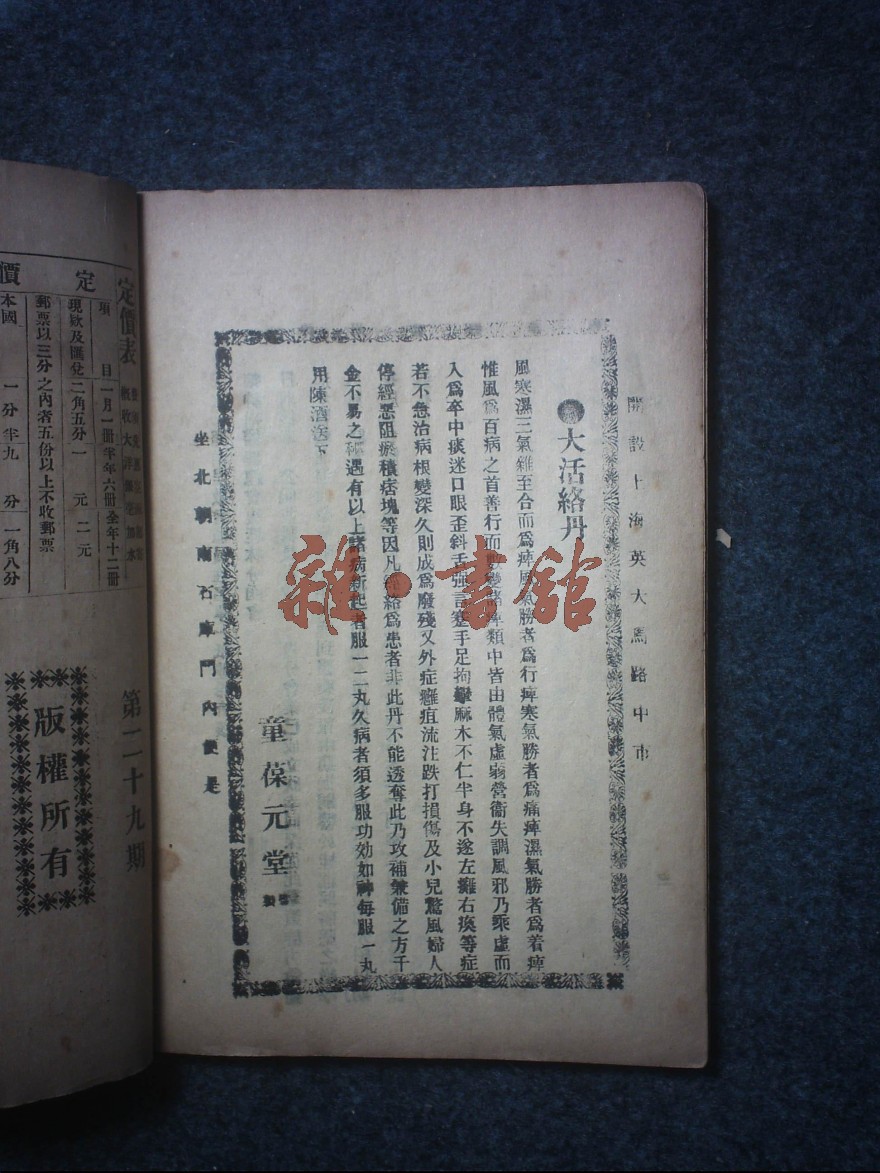 開設上海英大馬路中市
大活絡丹
風寒濕三氣雜至合而爲痺風氣勝者爲行痺寒氣勝者爲痛痺濕氣勝者爲着痺
惟風爲百病之首善行而數變諸痺類中皆由體氣虛弱營衞失調風邪乃乘虛而
入爲卒中痰迷口眼歪斜舌強言蹇手足拘攣麻木不仁半身不遂左癱右瘓等症
若不急治病根變深久則成爲廢殘又外症癰疽流注跌打損傷及小兒驚風婦人
停經惡阻瘀積痞塊等因凡經絡爲患者非此丹不能透奪此乃攻補兼備之方千
金不易之 遇有以上諸病新起者服一二丸久病者須多服功効如神每服一丸
用陳酒送下
童葆元堂
坐北朝南石庫門內便是
雜·書館
定價表
定價
項目
一月一冊
半年六冊
全年十二冊
現欵及匯兌
二角五分
一元
二元
郵票以三分之內者五份以上不收郵票
本國
一分半
九分
一角八分
第二十九期
版權所有